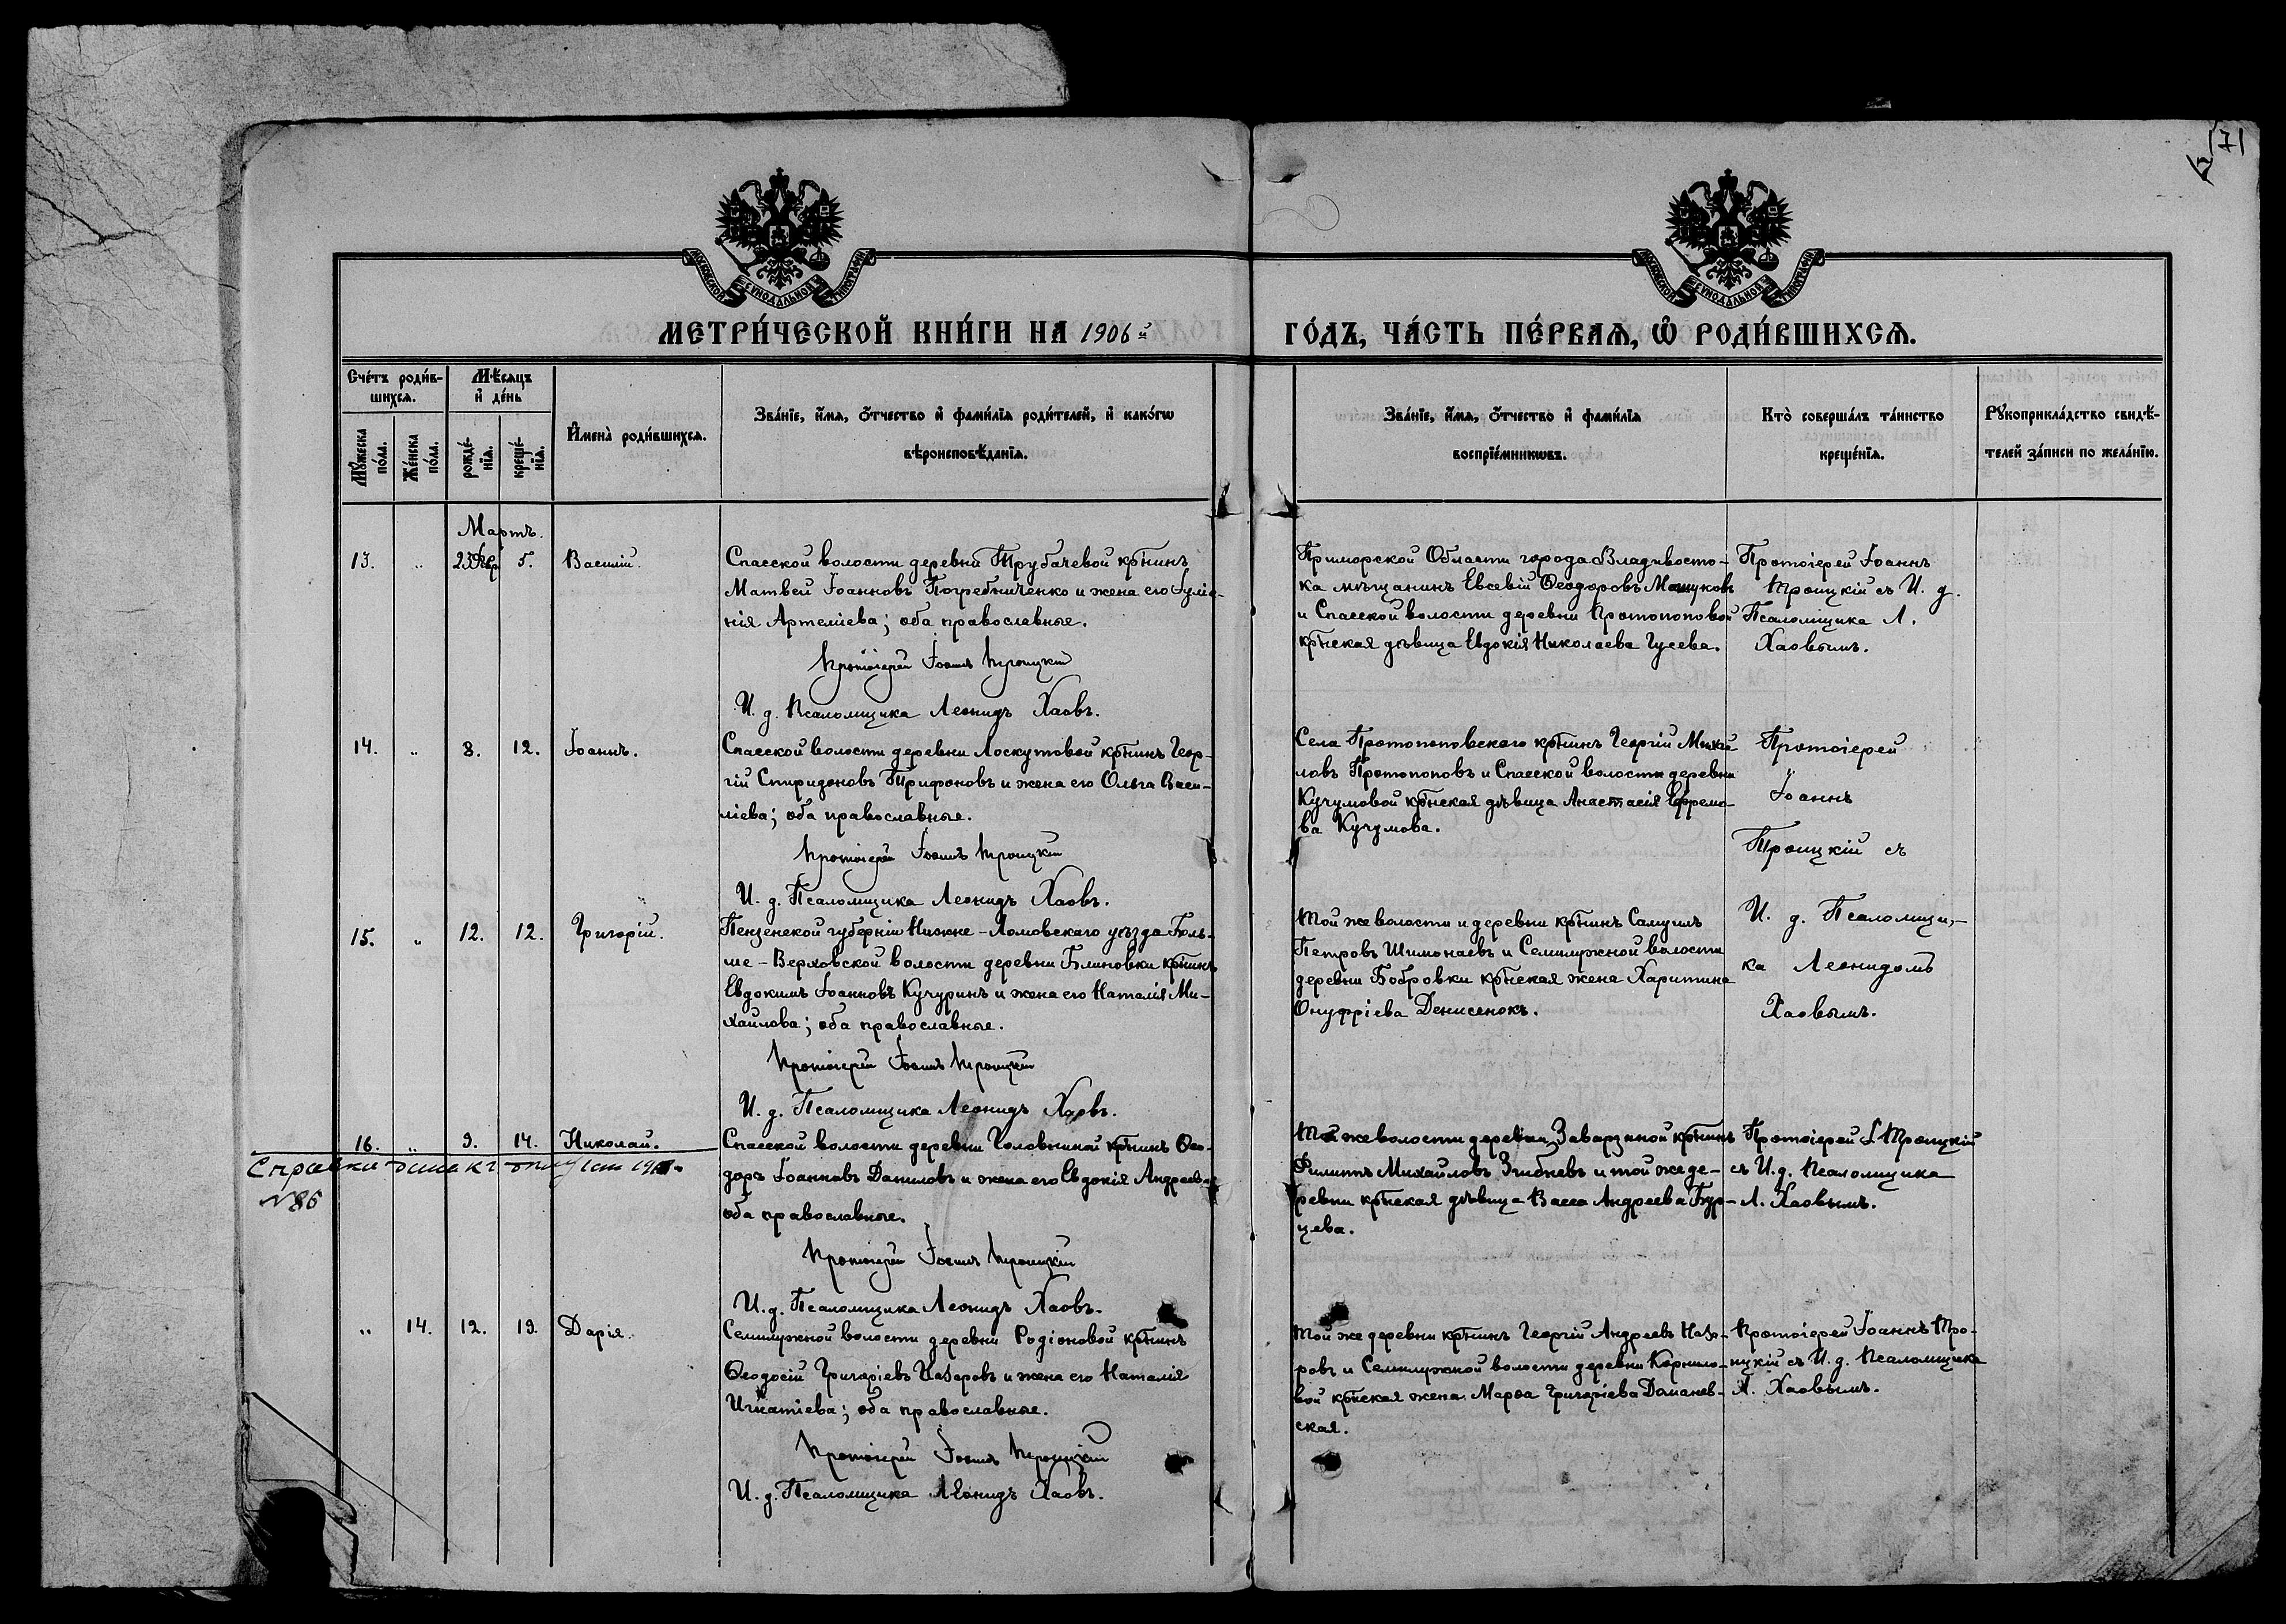 171
МОСКОВСКОЙ СѴНОДАЛЬНОЙ ТИПОГРАФІИ
МОСКОВСКОЙ СѴНОДАЛЬНОЙ ТИПОГРАФІИ
МЕТРИ́ЧЕСКОЙ КНИ́ГИ НА 1906й
ГО́ДЪ, ЧА́СТЬ ПЕ́РВАѦ, Ѡ РОДИ́ВШИХСѦ.
Сче́тъ роди́в-
шихсѧ.
Мѣ́сѧцъ
и҆ де́нь
Мꙋ́жеска
по́ла.
Же́нска
по́ла.
рожде́-
нїѧ.
креще́-
нїѧ.
И҆мена̀ роди́вшихсѧ.
Зва́нїе, и҆́мѧ, ѻ҆́тчество и҆ фами́лїѧ роди́телей, и҆ како́гѡ
вѣроисповѣ́данїѧ.
Зва́нїе, и҆́мѧ, ѻ҆́тчество и҆ фами́лїѧ
воспрїе́мникѡвъ.
Кто̀ соверша́лъ та́инство
креще́нїѧ.
Рꙋкоприкла́дство свидѣ́-
телей за́писи по жела́нїю.
Мартъ.
13. „ 23 Февр 5. Василій.
Спасской волости деревни Трубачевой кр̃нинъ
Матвей Іоанновъ Погребниченко и жена его Іулiа-
нія Артеміева; оба православные.
Протоіерей Іоаннъ Троицкій
И. д. Псаломщика Леонидъ Хаовъ.
Приморской Области города Владивосто-
ка мѣщанинъ Евсевій Ѳеодоровъ Машуковъ
и Спасской волости деревни Протопоповой
кр̃нская дѣвица Евдокія Николаева Гусева.
Протоіерей Іоаннъ
Троицкій съ И. д.
Псаломщика Л.
Хаовымъ.
14. „ 8. 12. Іоаннъ.
Спасской волости деревни Лоскутовой кр̃нинъ Геор-
гій Спиридоновъ Трифоновъ и жена его Ольга Васи-
ліева; оба православные.
Протоіерей Іоаннъ Троицкій
И. д. Псаломщика Леонидъ Хаовъ.
Села Протопоповскаго кр̃нинъ Георгій Михаи-
ловъ Протопоповъ и Спасской волости деревни
Кучумовой кр̃нская дѣвица Анастасія Ефремо-
ва Кучумова.
Протоіерей
Іоаннъ
Троицкій съ
И. д. Псаломщи-
ка Леонидомъ
Хаовымъ.
15. „ 12. 12. Григорій.
Пензенской губерніи Нижне-Ломовскаго уѣзда Боль-
ше-Верховской волости деревни Блиновки кр̃нинъ
Евдокимъ Іоанновъ Кучуринъ и жена его Наталія Ми-
хаилова; оба православные.
Протоіерей Іоаннъ Троицкій
И. д. Псаломщика Леонидъ Хаовъ.
Той же волости и деревни кр̃нинъ Самуилъ
Петровъ Шимонаевъ и Семилужной волости
деревни Бобровки кр̃нская жена Харитина
Онуфріева Денисенокъ.
16. „ 9. 14. Николай.
Справка дана
№ 86
Спасской волости деревни Головниной кр̃нинъ Ѳео-
доръ Іоанновъ Даниловъ и жена его Евдокія Андреева
оба православные.
Протоіерей Іоаннъ Троицкій
И. д. Псаломщика Леонидъ Хаовъ.
Той же волости деревни Заварзиной кр̃нинъ
Филиппъ Михайловъ Згибневъ и той же де-
ревни кр̃нская дѣвица Васса Андреева Бур-
цева.
Протоіерей І Троицкій
съ И. д. Псаломщика
Л. Хаовымъ.
„ 14. 12. 19. Дарія.
Семилужной волости деревни Родіоновой кр̃нинъ
Ѳеодосій Григоріевъ Назаровъ и жена его Наталія
Игнатіева; оба православные.
Протоіерей Іоаннъ Троицкій
И. д. Псаломщика Леонидъ Хаовъ.
Той же деревни кр̃нинъ Георгій Андреевъ Наза-
ровъ и Семилужной волости деревни Корнило-
вой кр̃нская жена Марѳа Григоріева Доманев-
ская.
Протоіерей Іоаннъ Тро-
ицкій съ И. д. Псаломщика
Л. Хаовымъ.